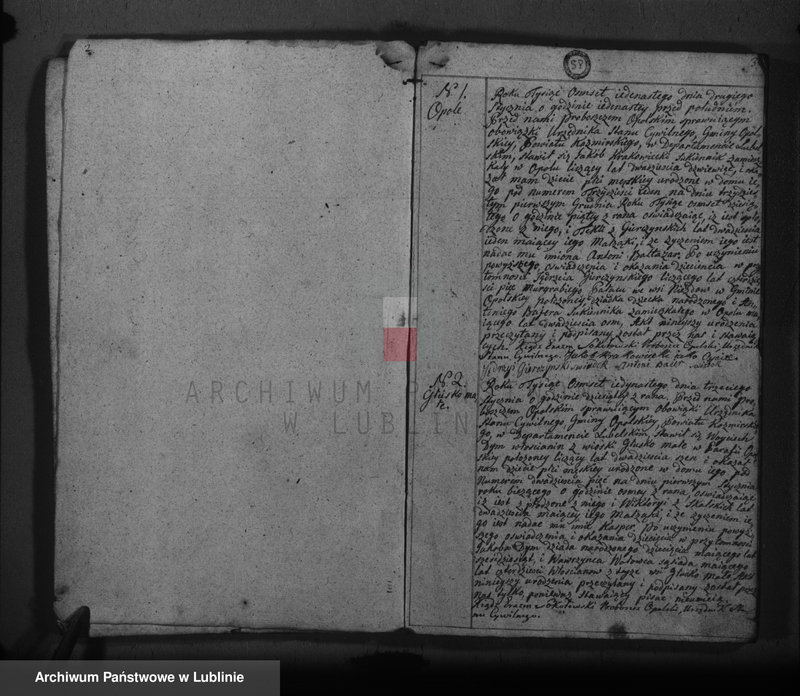 2
59
No 1.
Opole
Roku Tysiąc Osmset iedenastego dnia drugiego
Stycznia o godzinie iedenastey przed południem.
Przed nami Proboszczem Opolskim sprawuiącym
obowiązki Urzędnika Stanu Cywilnego, Gminy Opol-
skiey, Powiatu Kazimirskiego, w Departamencie Lubel-
skim, stawił się Jakób Krakowiecki Sukiennik zamiesz-
kały w Opolu liczący lat dwadzieścia dziewięć, i oka-
zał nam dziecie płci męskiey urodzone w domu ie-
go pod numerem trzydzieści ieden na dniu trzydzies-
tym pierwszym Grudnia Roku Tysiąc osmset dziesią-
tego o godzinie piątey z rana oświadczaiąc, iż iest spło-
dzone z niego, i Tekli z Gurzynskich lat dwadzieścia
ieden maiącey iego Małżąki, i że życzeniem iego iest
nadać mu imiona Antoni Baltazar. Po uczynieniu
powyższego oświadczenia i okazania dziecięcia w przy-
tomności Jędrzeia Gurzynskiego liczącego lat czterdzie-
ści pięć Murgrabiego Pałacu we wsi Niezdow w Gminie
Opolskiey położoney, dziadka dziecka narodzonego i An-
toniego Sukiennika zamieszkałego w Opolu ma-
iącego lat dwadzieścia osm, Akt ninieyszy urodzenia
przeczytany i podpisany został przez nas i stawaią-
cych. Xiądz Sokołowski Proboszcz Opolski Urzędnik
Stanu Cywilnego. Jakub Krakowiecki jako Oyciec
Jędrzej Gurzynski swiadek Antoni swiadek
No 2.
Głusko ma-
łe.
Roku Tysiąc Osmset iedynastego dnia trzeciego
Stycznia o godzinie dziesiątey z rana. Przed nami Pro-
boszczem Opolskim sprawuiącym obowiązki Urzędnika
Stanu Cywilnego, Gminy Opolskiey, Powiatu Kazimirskie-
go, w Departamencie Lubelskim, Stawił się Woyciech
Dym włościanin z wioski Głusko małe w Parafii Opol-
skiey położoney liczący lat dwadzieścia sześć i okazał
nam dziecie płci męskiey urodzone w domu iego pod
Numerem dwadzieścia pięć na dniu pierwszym Stycznia
roku bieżącego o godzinie osmey z rana, oświadczaiąc
iż iest spłodzone z niego i Wiktoryi z Skalskich lat
dwadzieścia maiącey iego Małżąki, i że życzeniem ie-
go iest nadać mu imie Kasper. Po uczynieniu powyż-
szego oświadczenia i okazania dziecięcia w przytomności
Jakoba Dym dziada narodzonego dziecięcia maiącego lat
sześćdziesiąt, i Wawrzynca sąsiada maiącego
lat czterdzieści włościanow z teyże wsi Głusko małe. Akt
ninieyszy urodzenia przeczytany i podpisany został przez
nas tylko, ponieważ stawaiący pisać nieumieią.
Xiądz Sokołowski Proboszcz Opolski, Urzędnik Sta-
nu Cywilnego.
ARCHIWUM PAŃSTWOWE
W LUBLINIE
Archiwum Państwowe w Lublinie